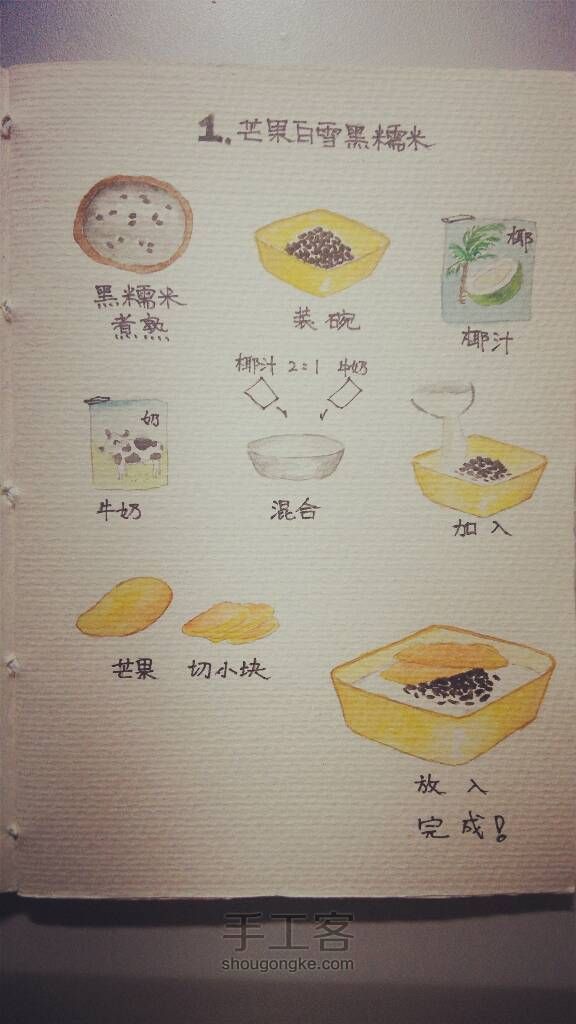 1.芒果白雪黑糯米
椰
黑糯米
煮熟
装碗
椰汁
椰汁 2:1 牛奶
奶
牛奶
混合
加入
芒果 切小块
放入
完成!
手工客
shougongke.com